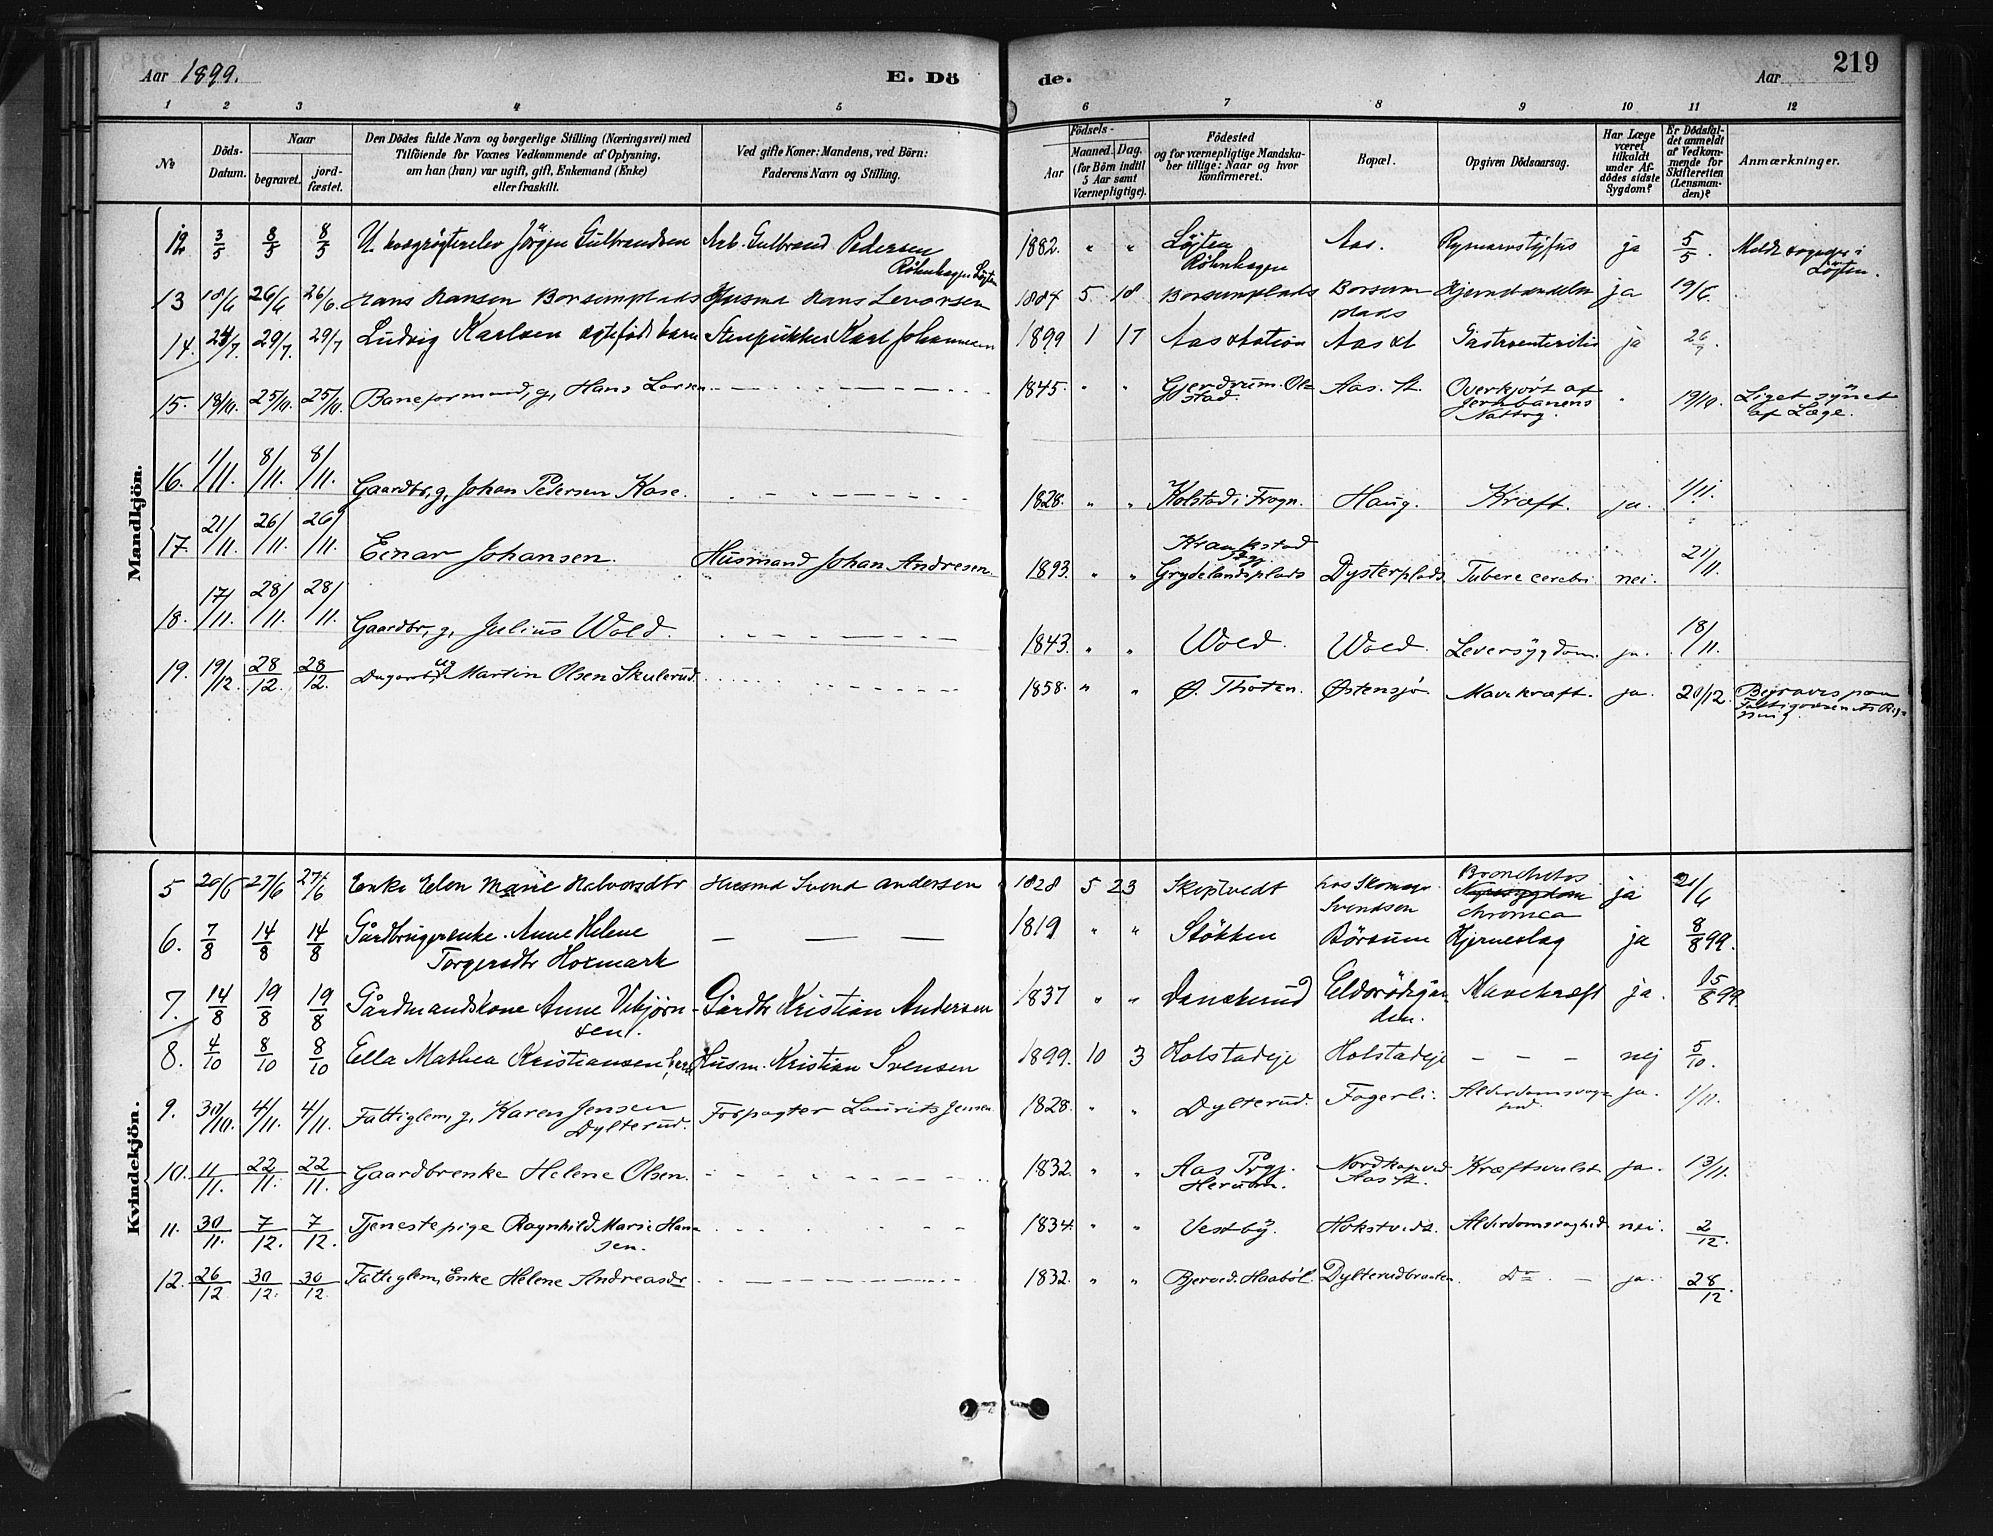 Aar 1899.
E. Dö
de.
Aar
219
1 2 3 4 5 6 7 8 9 10 11 12
No
Döds-Datum.
Naar
begravet.
jordfæstet.
Den Dödes fulde Navn og borgerlige Stilling (Næringsvei) med
Tilföiende for Voxnes Vedkommende af Oplysning,
om han (hun) var ugift, gift, Enkemand (Enke)
eller fraskilt.
Ved gifte Koner: Mandens, ved Börn:
Faderens Navn og Stilling.
Födsels-
Aar
Maaned. Dag.
(for Börn indtil
5 Aar samt
Værnepligtige).
Födested
og for værnepligtige Mandska-
ber tillige: Naar og hvor
konfirmeret.
Bopæl.
Opgiven Dödsaarsag.
Har Læge
været
tilkaldt
under Af-
dödes sidste
Sygdom?
Er Dödsfal-
det anmeldt
af Vedkom-
mende for
Skifteretten
(Lensman-
den)?
Anmærkninger.
Mandkjön.
12 3/5 8/5 8/5 U. Jörgen Gulbrandsen Arb. Gulbrand Pedersen 1882. " " Löjten Aas. ja 5/5.
Röhnhagen Löjten Röhnhagen Löjten.
13 18/6 26/6 26/6. Hans Hansen Borsumplads Husmd Hans Levorsen 1884 5 18 Borsumplads Borsum ja 19/6.
plads
14. 24/7. 29/7. 29/7 Ludvig Karlsen ægtefödt barn Stenpukker Karl Johannesen 1899 1 17 Aas station Aas st Gastroenteritis ja
15. 18/10. 25/10. 25/10. Baneformand, g, Hans Larsen 1845. " " Gjerdrum. Aas. St. Overkjört af . 19/10. Liget synet
stad. Jernbanens af Læge.
Nattog.
16. 1/11. 8/11. 8/11. Gaardbr, g, Johan Pedersen Kase. 1828. " " Kolstad i Frogn. Haug. Kræft. ja. 1/11.
17. 21/11. 26/11. 26/11. Einar Johansen. Husmand Johan Andresen. 1893. " " Grydelandsplads Dysterplads. nei. 21/11.
18. 17/11. 28/11. 28/11. Gaardbr, g, Julius Wold. 1843. " " Wold. Wold. Leversygdom. ja. 18/11.
19. 19/12. 28/12. 28/12. ug Martin Olsen Skulerud. 1858. " " Ø. Thoten. Østensjö. Mavekræft. ja. 20/12. Begraves paa
Kvindekjön.
5 20/6 27/6 27/6 Enke Elen Marie Halvorsdtr Husmd Svend Andersen 1828 5 23 Skoptvedt hos Skomager Bronchitis ja 21/6
Svendsen chronica
6. 7/8 14/8 14/8 Gårdbrugerenke. Anne Helene — — — 1819 " " Stökken Börsum Hjerneslag ja 8/8 99.
Torgersdtr Hoxmark
7. 14/8 19/8 19/8 Gårdmandskone Anne Vibjörn- Gårdbr Kristian Andersen 1837 " " Danskerud Mavekræft ja. 15/8 99
sen. den.
8. 4/10 8/10 8/10 Ella Mathea Kristiansen Husm. Kristian Svensen 1899. 10 3 Holstadeje Holstadeje - - - nej 5/10.
9. 30/10. 4/11. 4/11. Fattiglem, g, Karen Jensen Forpagter Laurits Jensen. 1828. " " Dylterud. Fagerli. ja. 1/11.
Dylterud.
10. 11/11. 22/11. 22/11. Gaardbrenke Helene Olsen. 1832. " " Aas Prgj. Kræftsvulst ja. 13/11.
Aas St.
11. 30/11. 7/12. 7/12. Tjenestepige Ragnhild Marie Han- 1834. " " Vestby. Alderdomssvaghed. nei. 2/12.
sen.
12. 26/12 30/12. 30/12. Fattiglem, Enke Helene Andreasdr 1832. " " Haaböl. Dylterudbraaten. Do ja. 28/12.